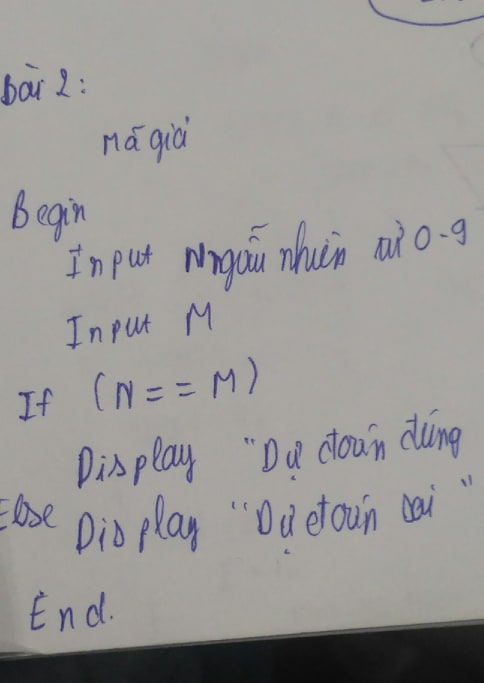 Bài 2:
Mã giả
Begin
Input N ngẫu nhiên từ 0-9
Input M
If (N == M)
Display "Dự đoán đúng
Else Display "Dự đoán sai"
End.